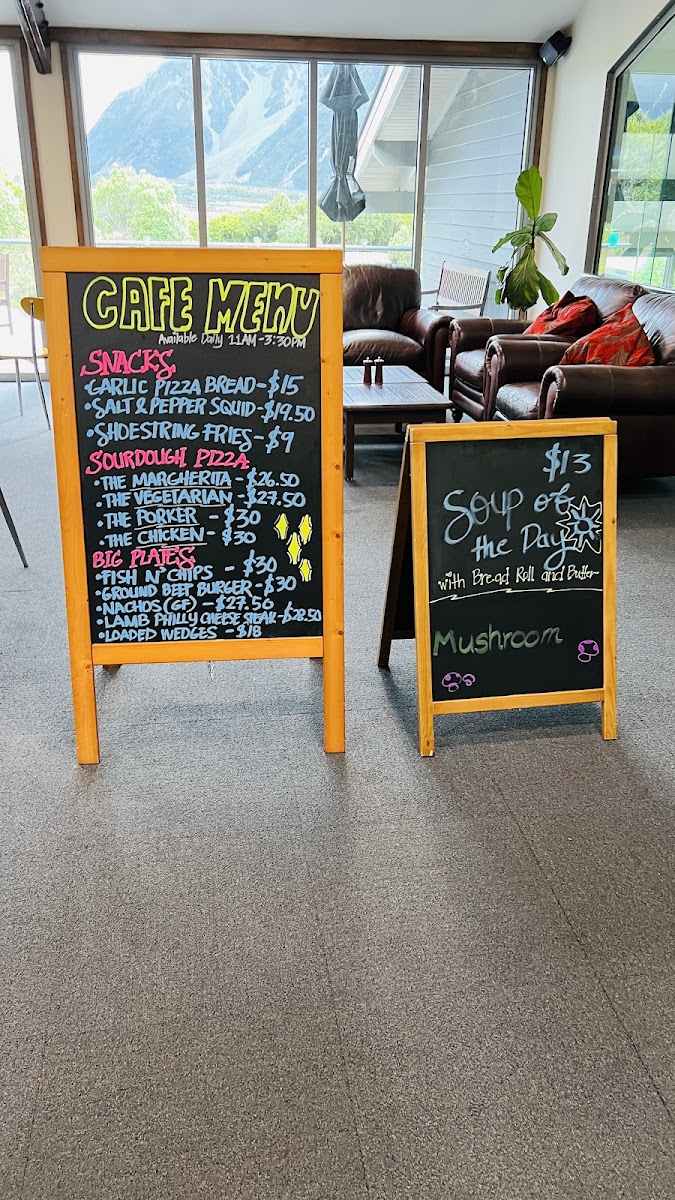 CAFE MENU
Available Daily 11AM-3:30PM
SNACKS
•GARLIC PIZZA BREAD-$15
•SALT & PEPPER SQUID-$19.50
•SHOESTRING FRIES-$9
SOURDOUGH PIZZA
•THE MARGHERITA -$26.50
•THE VEGETARIAN -$27.50
•THE PORKER -$30
•THE CHICKEN -$30
BIG PLATES
•FISH N' CHIPS -$30
•GROUND BEEF BURGER-$30
•NACHOS (GF) -$27.50
•LAMB PHILLY CHEESE STEAK-$28.50
•LOADED WEDGES -$18
$13
Soup of
the Day
with Bread Roll and Butter
Mushroom